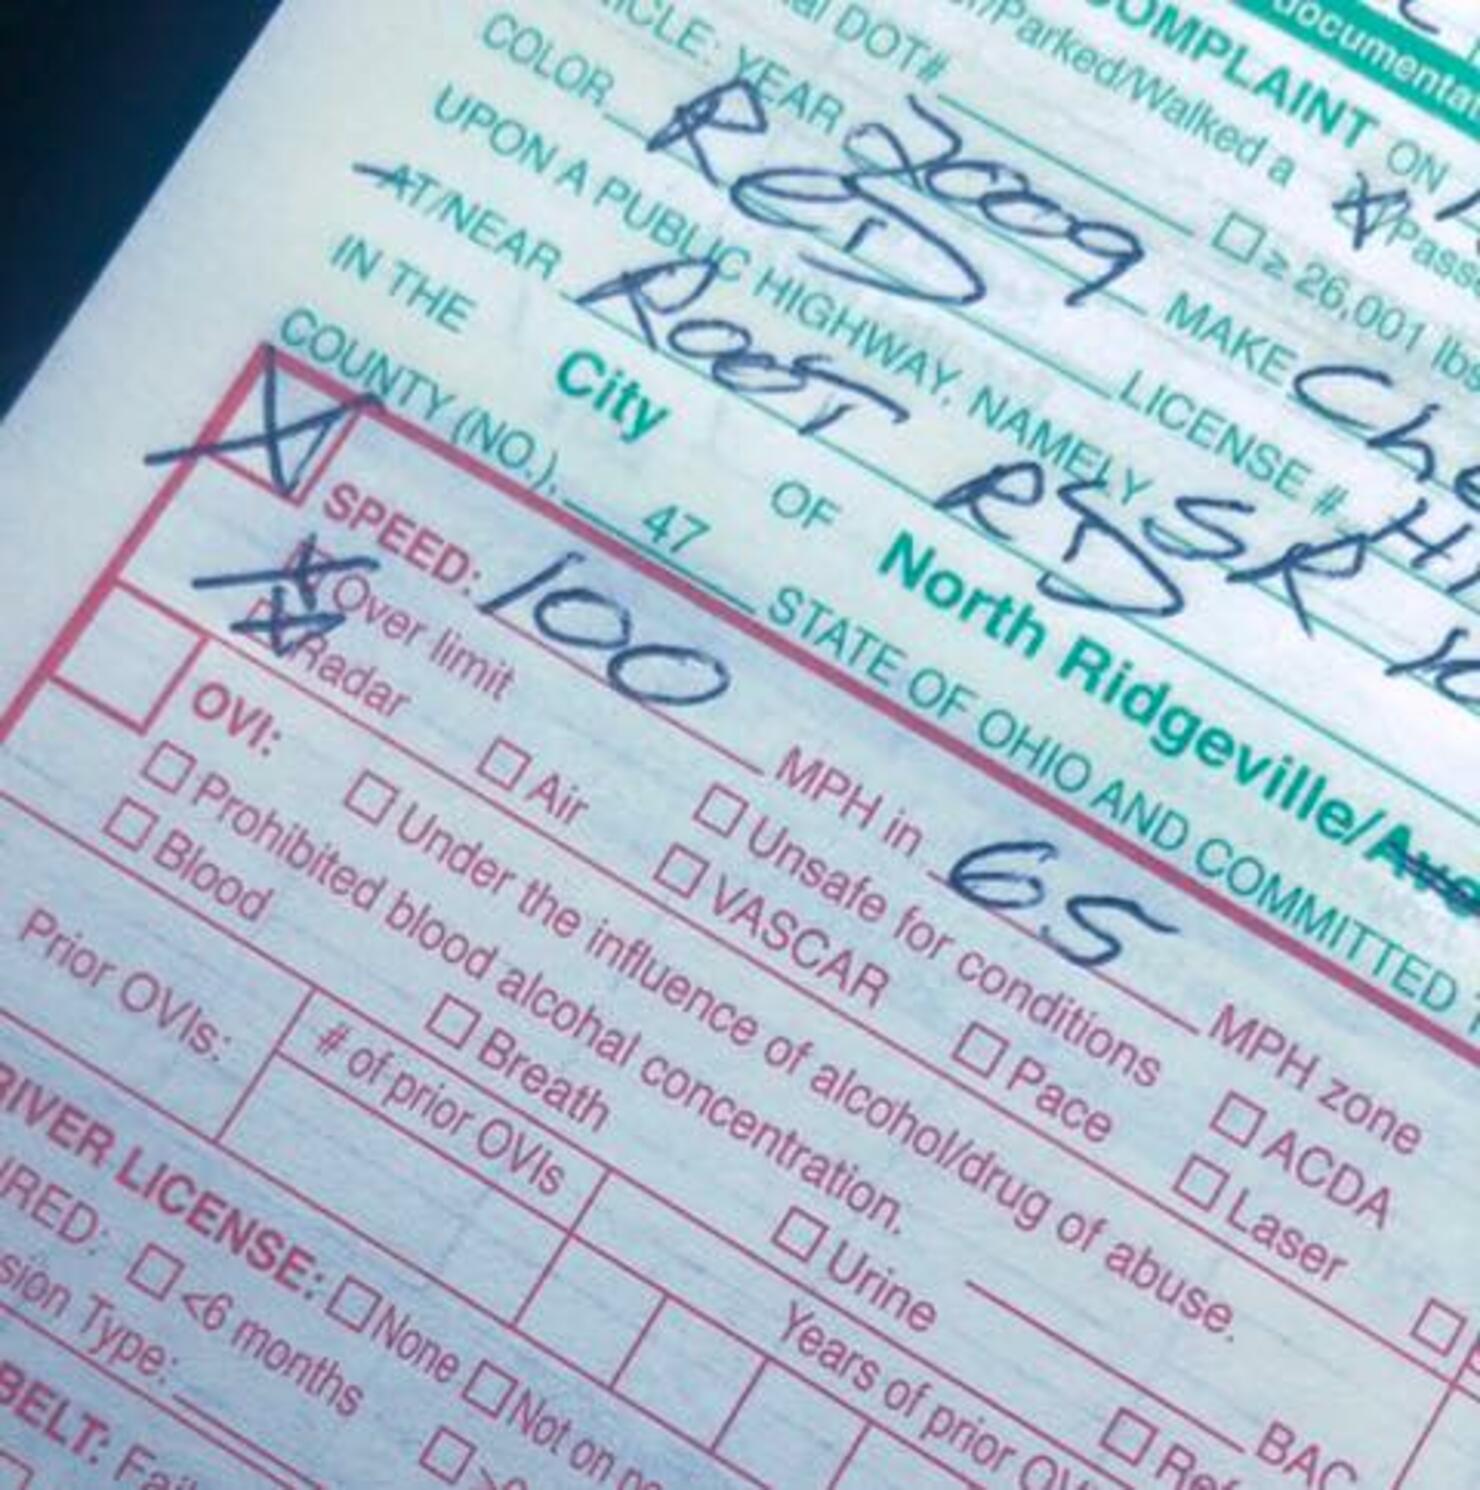 documenta
COMPLAINT ON
/Parked/Walked a Pass
DOT# ≥ 26,001 lbs
YEAR 2009 MAKE Che
COLOR Red LICENSE # H
UPON A PUBLIC HIGHWAY, NAMELY SR 10
AT/NEAR Root RD
IN THE City OF North Ridgeville/
COUNTY (NO.), 47 STATE OF OHIO AND COMMITTED
SPEED: 100 MPH in 65 MPH zone
Over limit Unsafe for conditions ACDA
Radar Air VASCAR Pace Laser
OVI: Under the influence of alcohol/drug of abuse.
Prohibited blood alcohal concentration.
Blood Breath Urine BAC
Prior OVIs: # of prior OVIs Years of prior OV
RIVER LICENSE: None Not on
IRED: <6 months
sion Type:
BELT: Fail